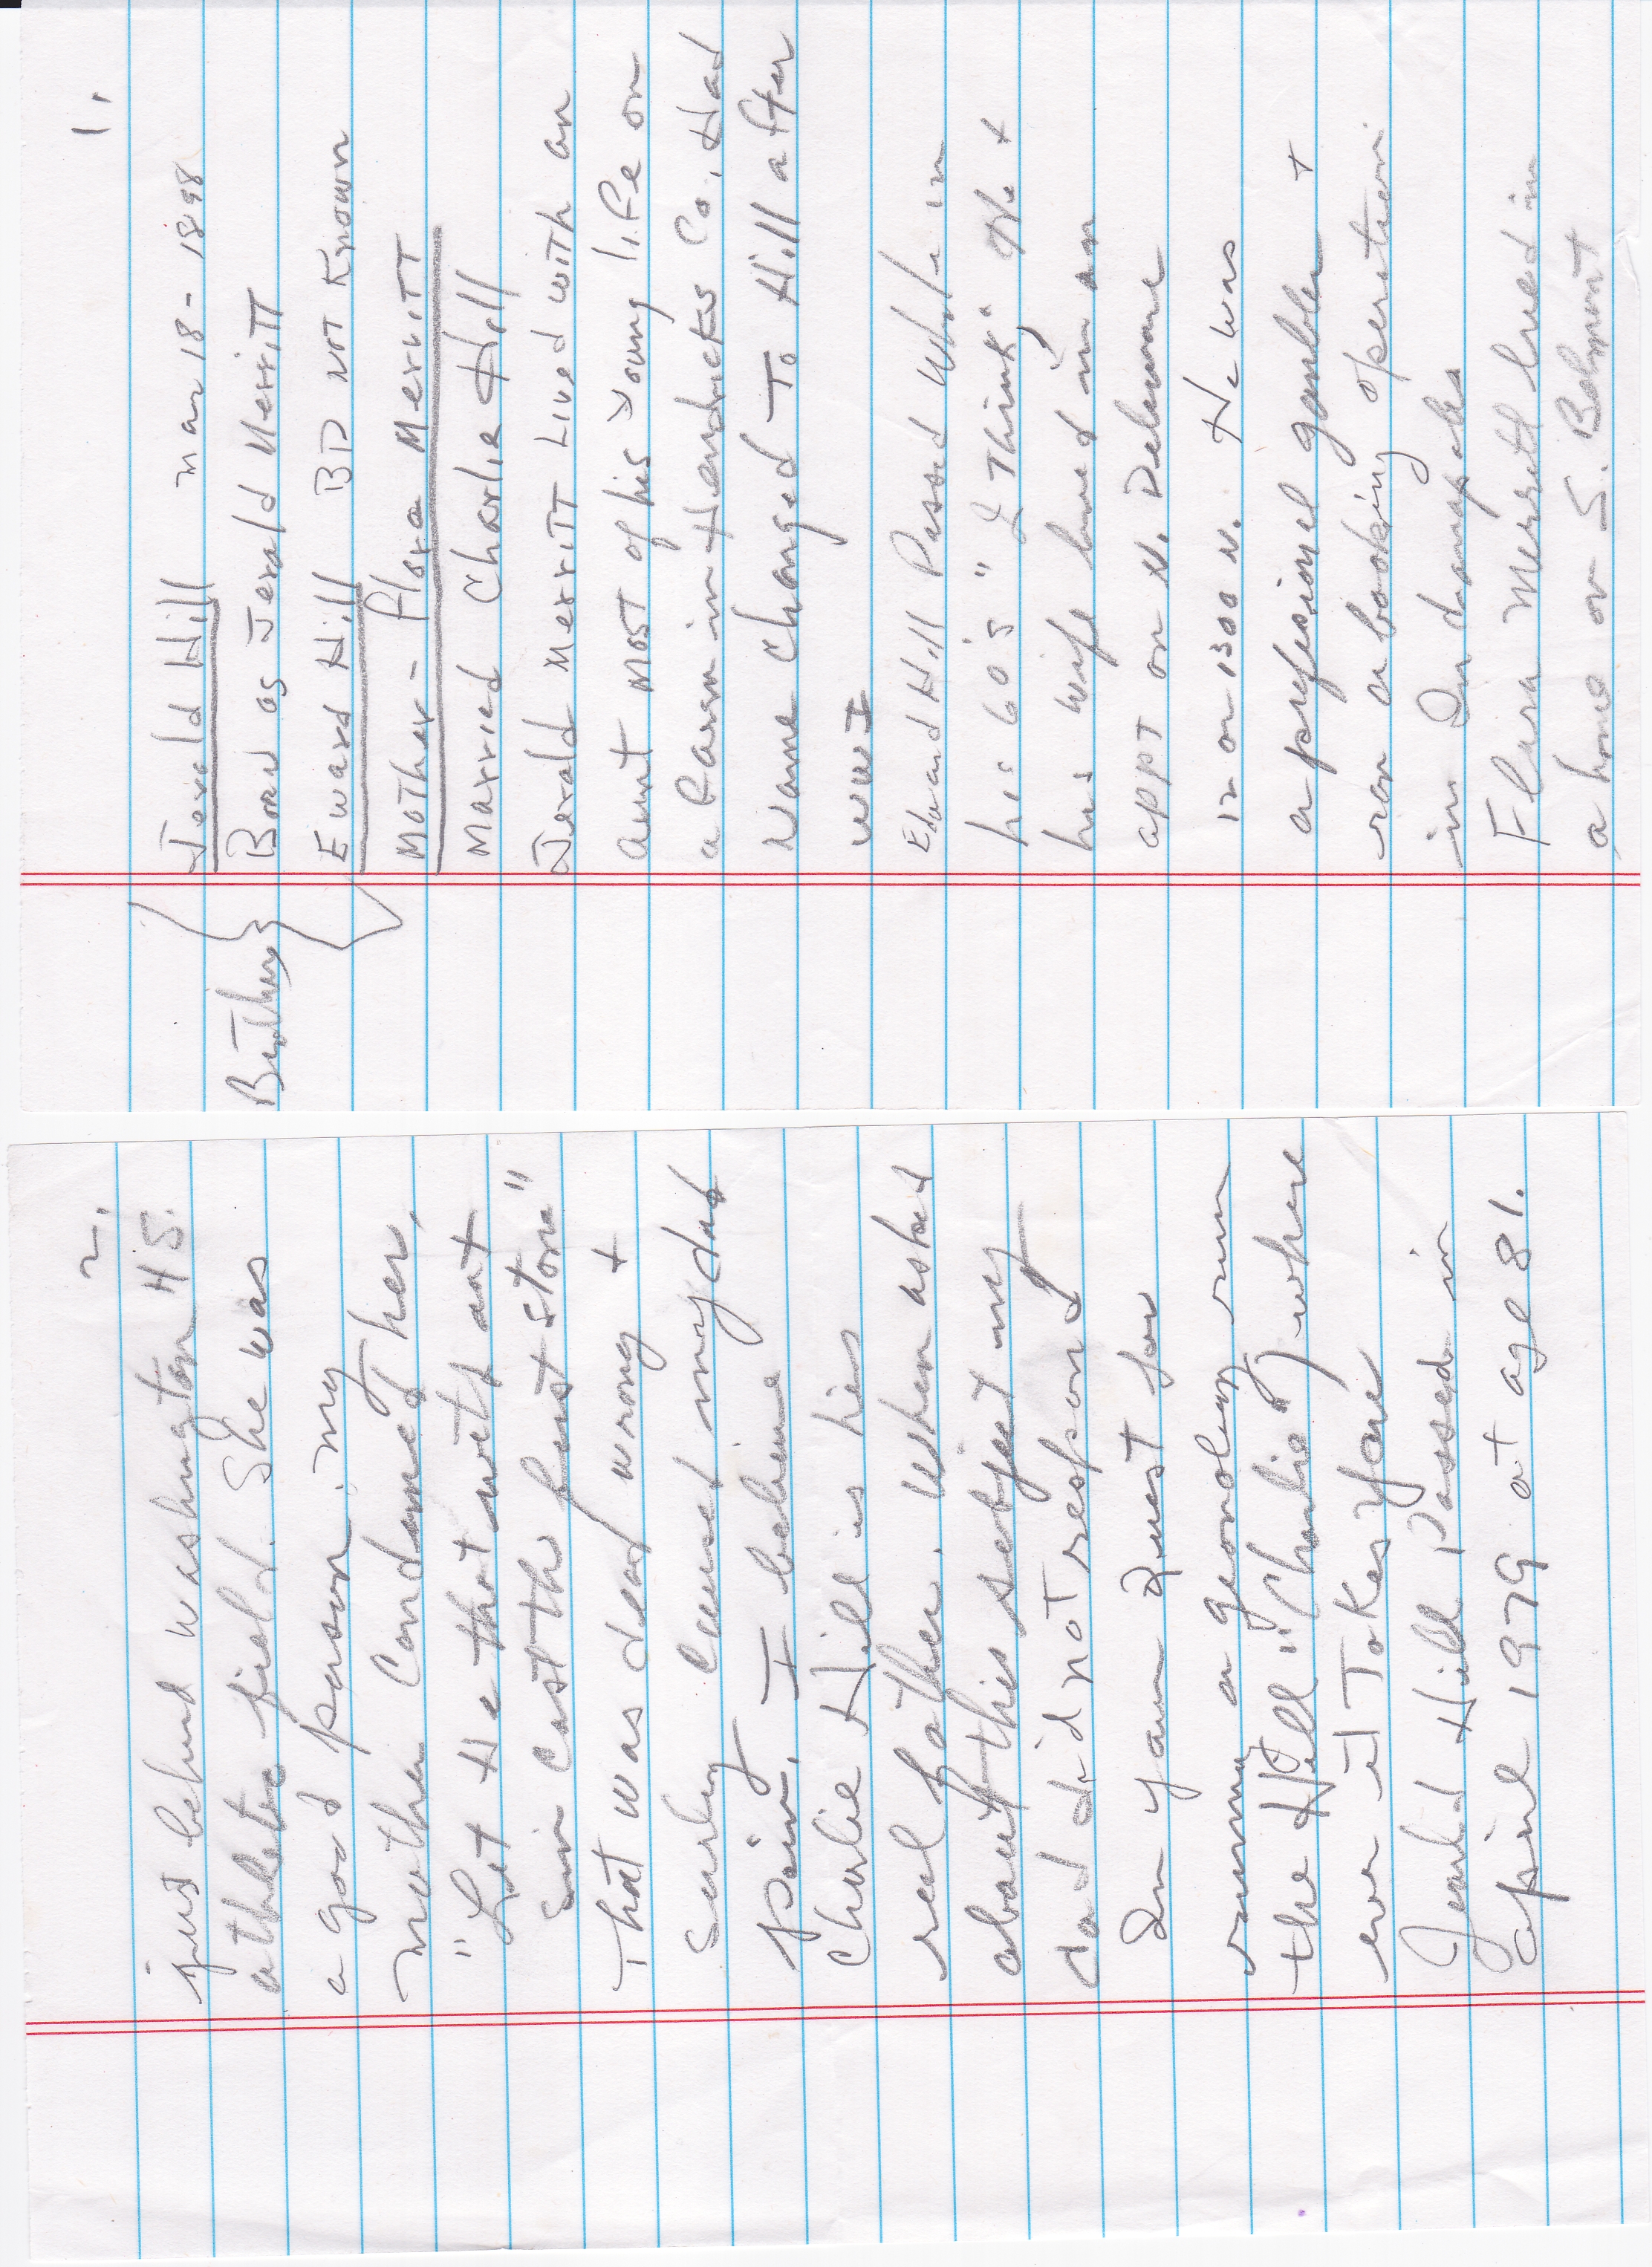 1.
Jerald Hill mar 18 - 1898
Born as Jerald Merritt
Brothers
Eward Hill BD not known
Mother - Flora Merritt
Married Charlie Hill
Jerald Merritt Lived with an
aunt most of his young life on
a farm in Hendricks Co. Had
Name changed To Hill after
WWI
Edward Hill Passed while in
his 60's "I Think" He +
his wife lived in an
appt on N. Delaware
12 or 1300 N. He was
a profesional gambler +
ran a booking operation
in Indianapolis
Flora Merritt lived in
a home on S. Belmont
2.
just behind Washington H S.
athletic field. She was
a good person. My
mother Condemed her,
"Let He that with out
Sin Cast the first stone"
That was dead wrong +
surley caused my dad
pain. I believe
Charlie Hill is his
real father. When asked
about this subject my
dad did not respond
In your quest for
running a geonoligy run
the Hill "Charlie", where
ever it Takes you
Jearld Hill Passed in
April 1979 at age 81.